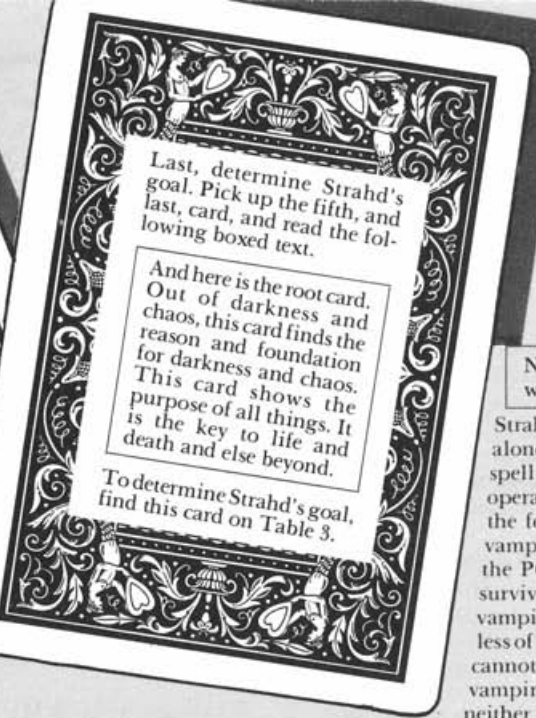 Last, determine Strahd's
goal. Pick up the fifth, and
last, card, and read the fol-
lowing boxed text.
And here is the root card.
Out of darkness and
chaos, this card finds the
reason and foundation
for darkness and chaos.
This card shows the
purpose of all things. It
is the key to life and
death and else beyond.
To determine Strahd's goal,
find this card on Table 3.
N
w
Stral
alon
spell
opera
the f
vamp
the P
surviv
vampi
less of
cannot
vampir
neither